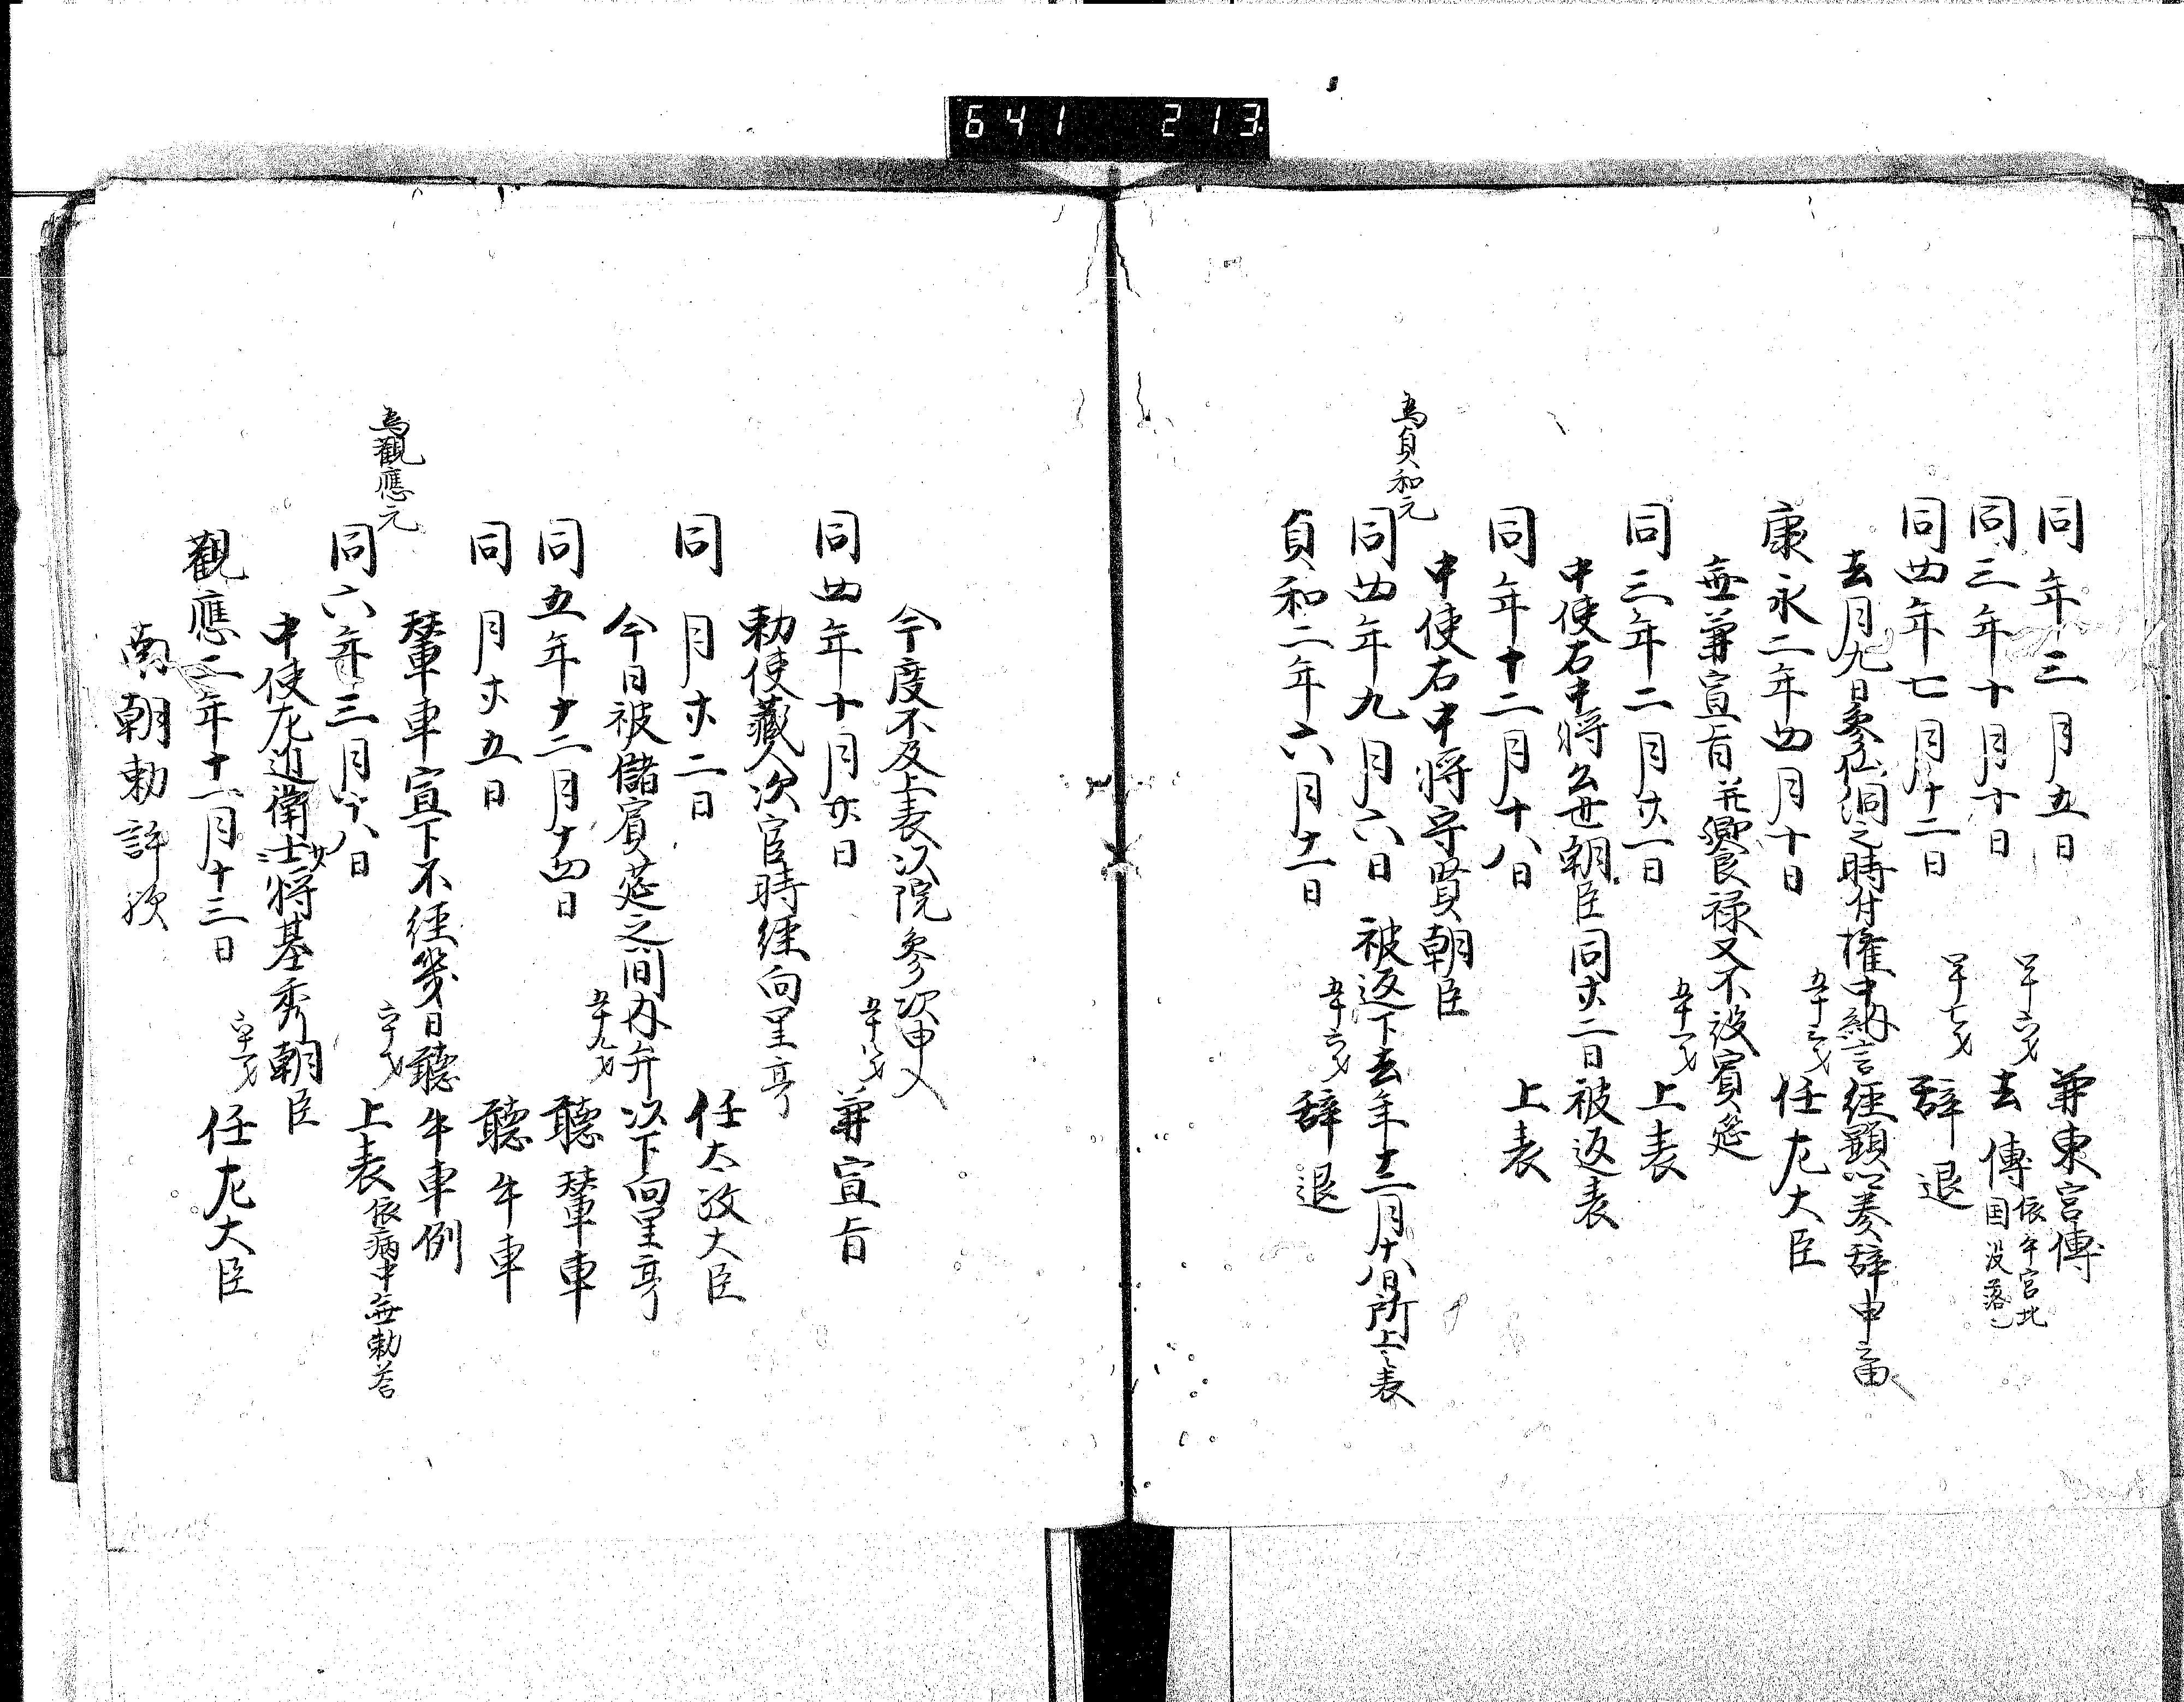 641 213
同年三月五日 兼東宮傅
同三年十月十日 四十六才 去傅 依年宮北国没落也
同四年七月十二日 四十七才 辞退
去月九日参仙洞之時付権中納言経顕卿奏辞申畢
康永二年四月十日 五十三才 任左大臣
無兼宣旨并饗禄又不設賓筵
同三年二月廿一日 上表
中使右中将公世朝臣同廿二日被返表
同年十二月十八日 上表
中使右中将守賢朝臣
為貞和元
同四年九月六日 被返下去年十二月十八日所上之表
貞和二年六月十一日 五十六才 辞退
今度不及上表以院参次申入
同四年十月廿日 五十八才 兼宣旨
勅使蔵人次官時経向里亭
同月廿二日 任太政大臣
今日被儲賓筵之間内弁以下向里亭
同五年十二月十四日 五十九才 聴輦車
同月廿五日 聴牛車
輦車宣下不経幾日聴牛車例
為觀應元
同六年三月十八日 六十才 上表 依病中無勅答
中使左近衛少将基秀朝臣
觀應二年十一月十三日 任左大臣
南朝勅許歟